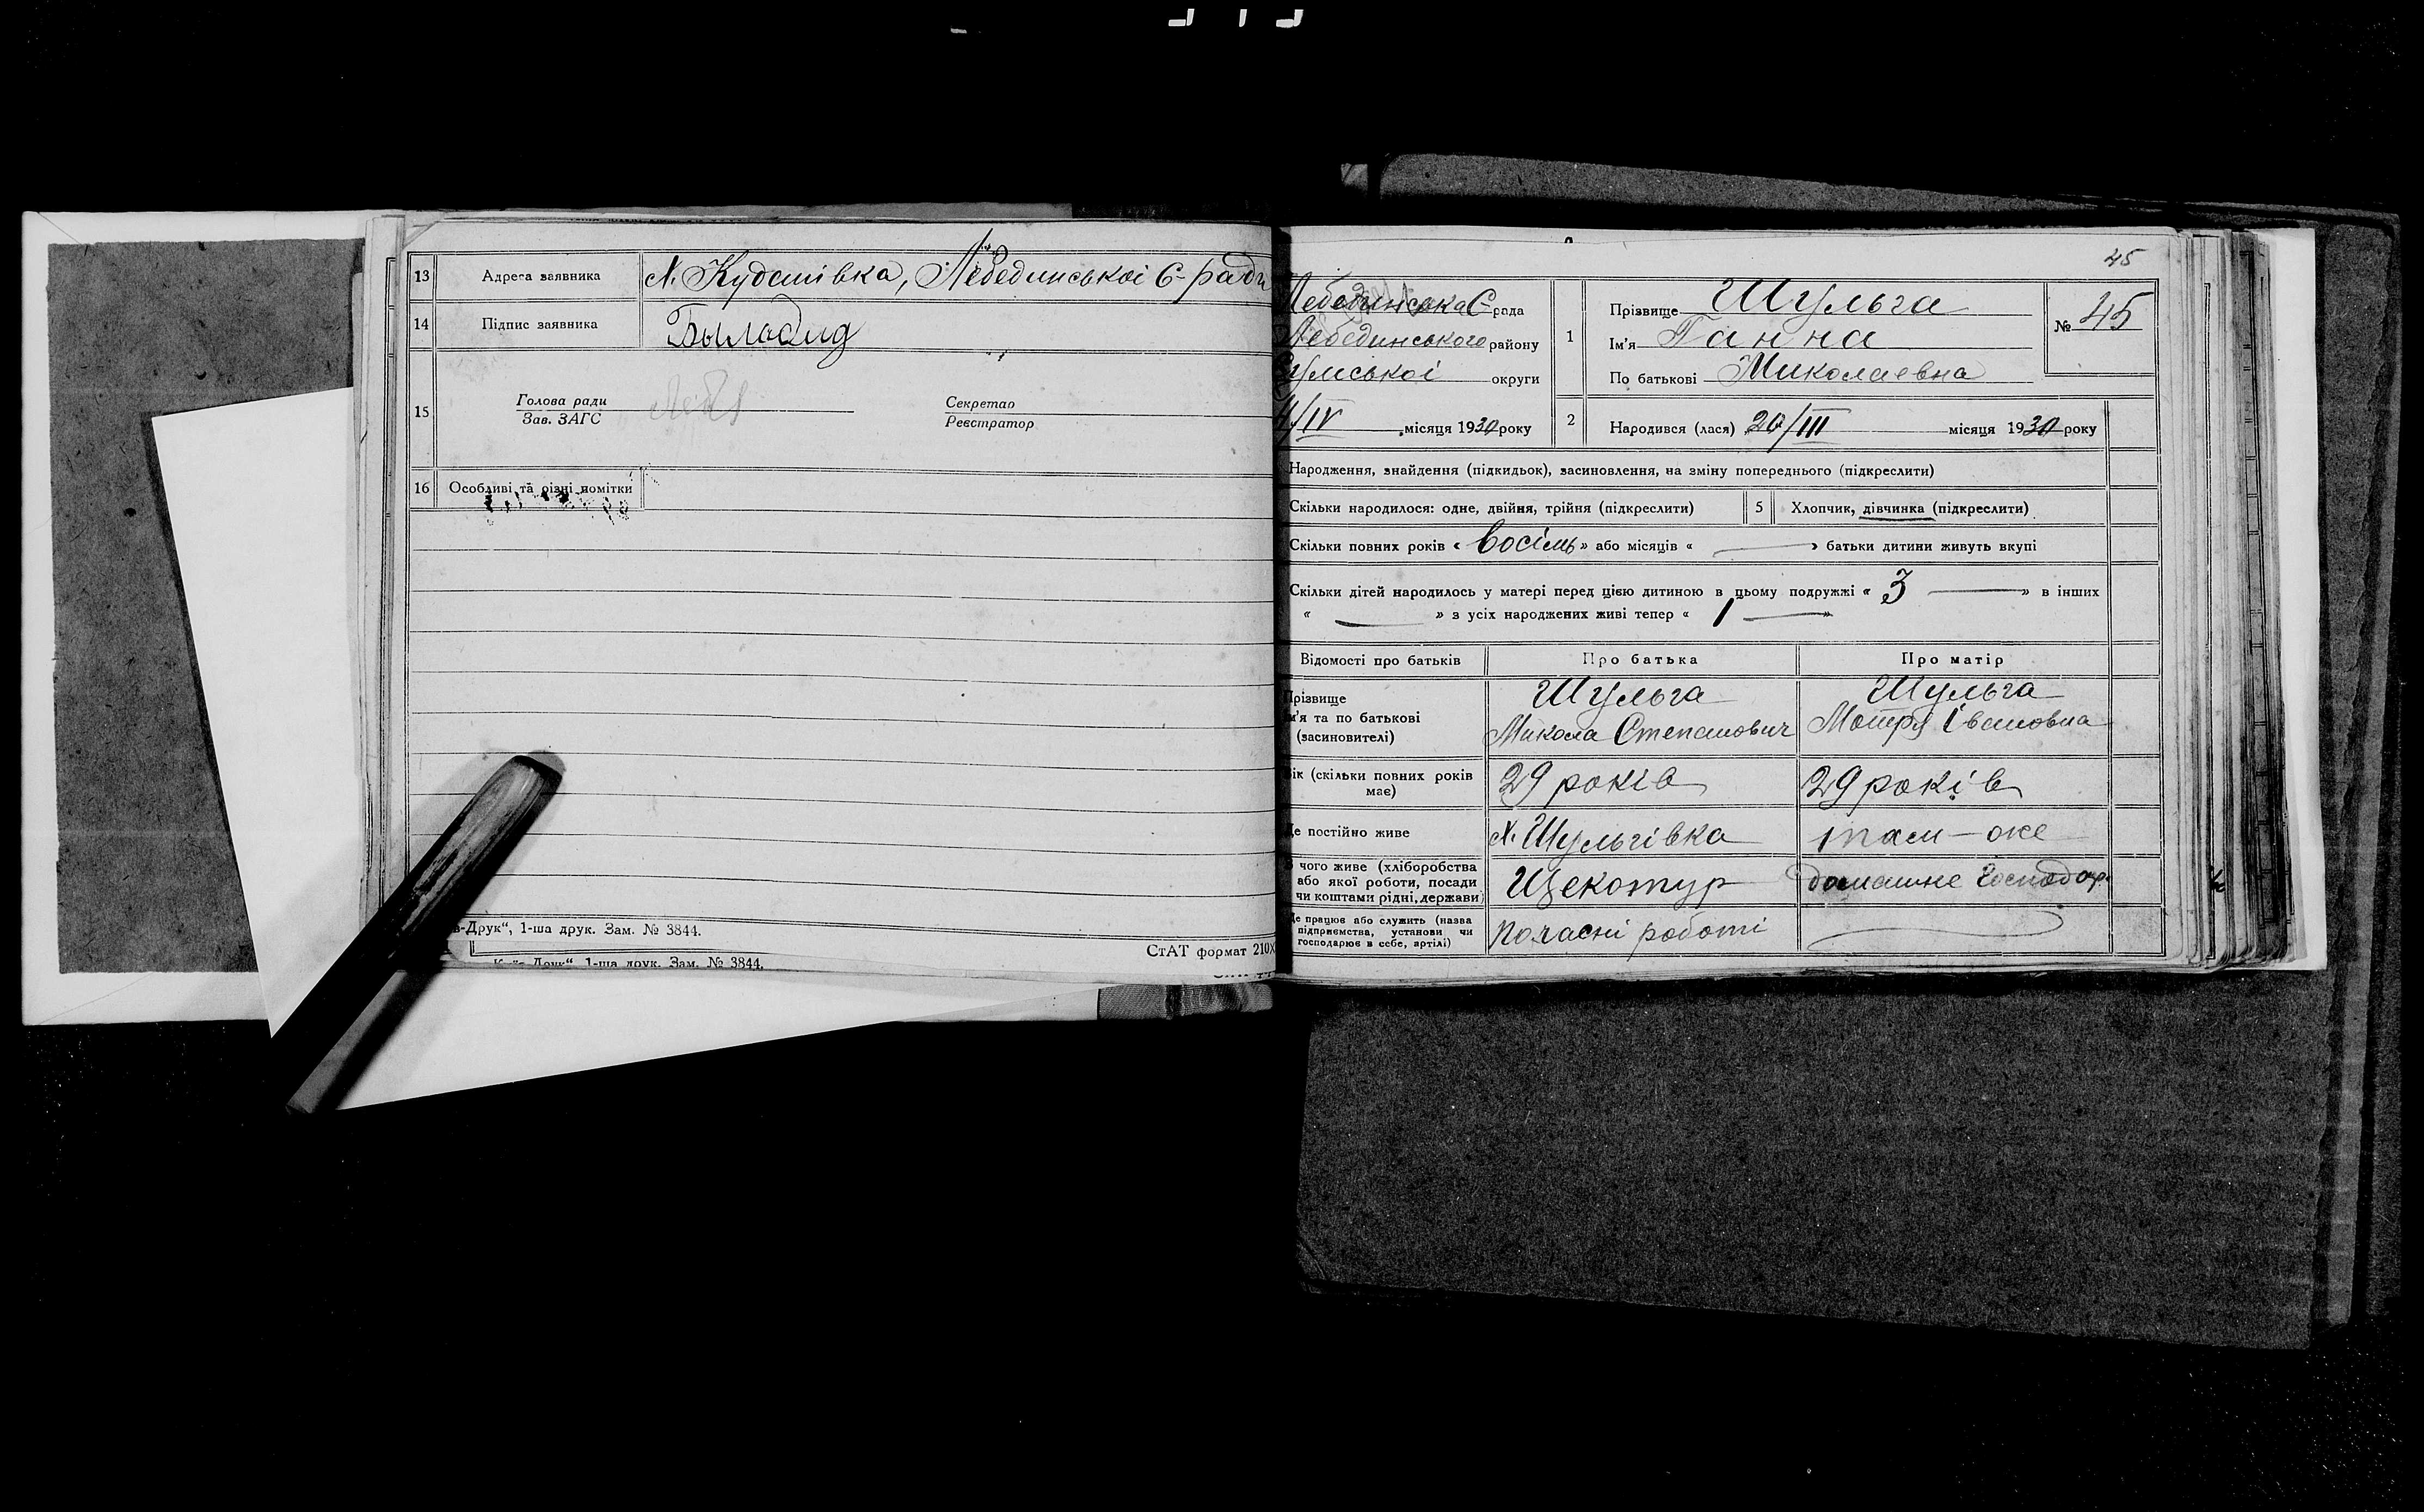 13 Адреса заявника х. Кудинівка, Лебединської С-ради
14 Підпис заявника
15 Голова ради
Зав. ЗАГС
Секретар
Реєстратор
16 Особливі та різні помітки
в-Друк“, 1-ша друк. Зам. № 3844.
СтАТ формат 210X
Київ-Друк“ 1-ша друк. Зам. № 3844.
45
Лебединська С рада
Лебединського району
Сумської округи
4/IV місяця 1930 року
1
Прізвище Шульга
Ім'я Ганна
По батькові Миколаевна
№ 45
2 Народився (лася) 20/III місяця 1930 року
Народження, знайдення (підкидьок), засиновлення, на зміну попереднього (підкреслити)
Скільки народилося: одне, двійня, трійня (підкреслити) 5 Хлопчик, дівчинка (підкреслити)
Скільки повних років « восімь » або місяців « — » батьки дитини живуть вкупі
Скільки дітей народилось у матері перед цією дитиною в цьому подружжі « 3 — » в інших
« — » з усіх народжених живі тепер « 1 — »
Відомості про батьків Про батька Про матір
Прізвище
ім'я та по батькові
(засиновителі)
Шульга
Микола Степанович
Шульга
Мотря Івановна
Вік (скільки повних років
має)
29 років
29 років
Де постійно живе х. Шульгівка там-оже
З чого живе (хліборобства
або якої роботи, посади
чи коштами рідні, держави)
Щекотур
домашнє господар
Де працює або служить (назва
підприємства, установи чи
господарює в себе, артілі)
почасні роботі